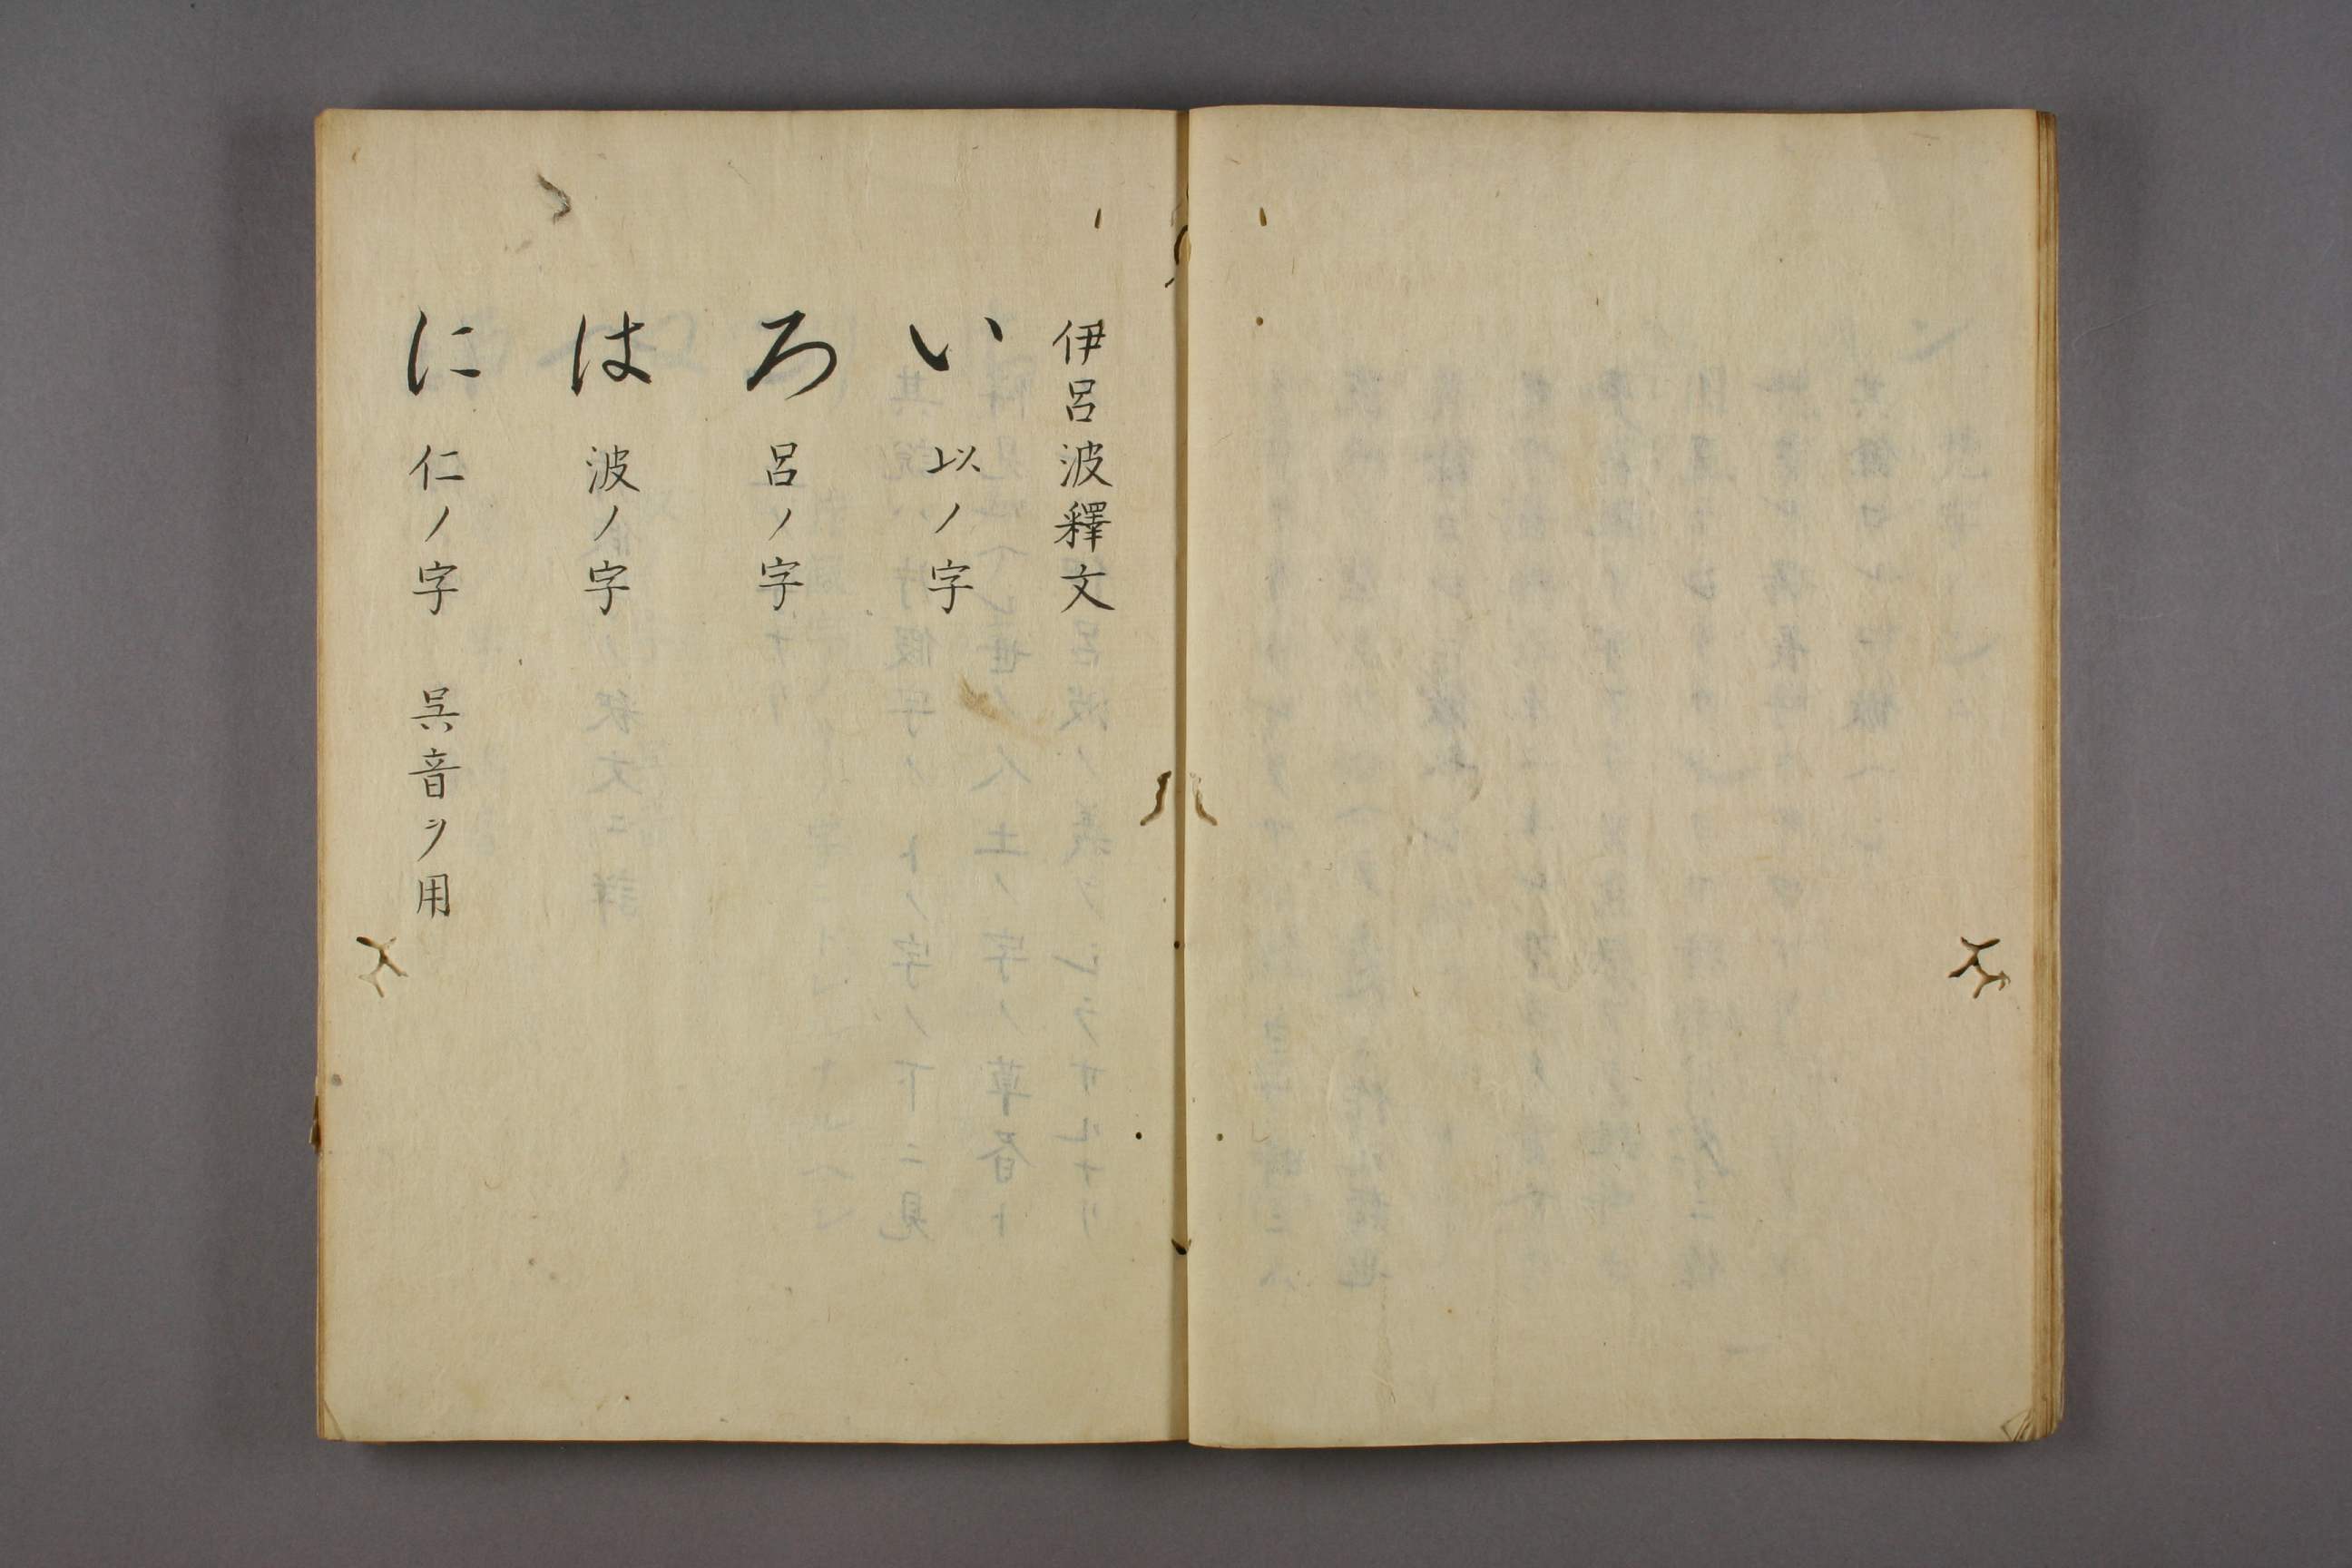 伊呂波釋文
い 以ノ字
ろ 呂ノ字
は 波ノ字
に 仁ノ字 呉音ヲ用